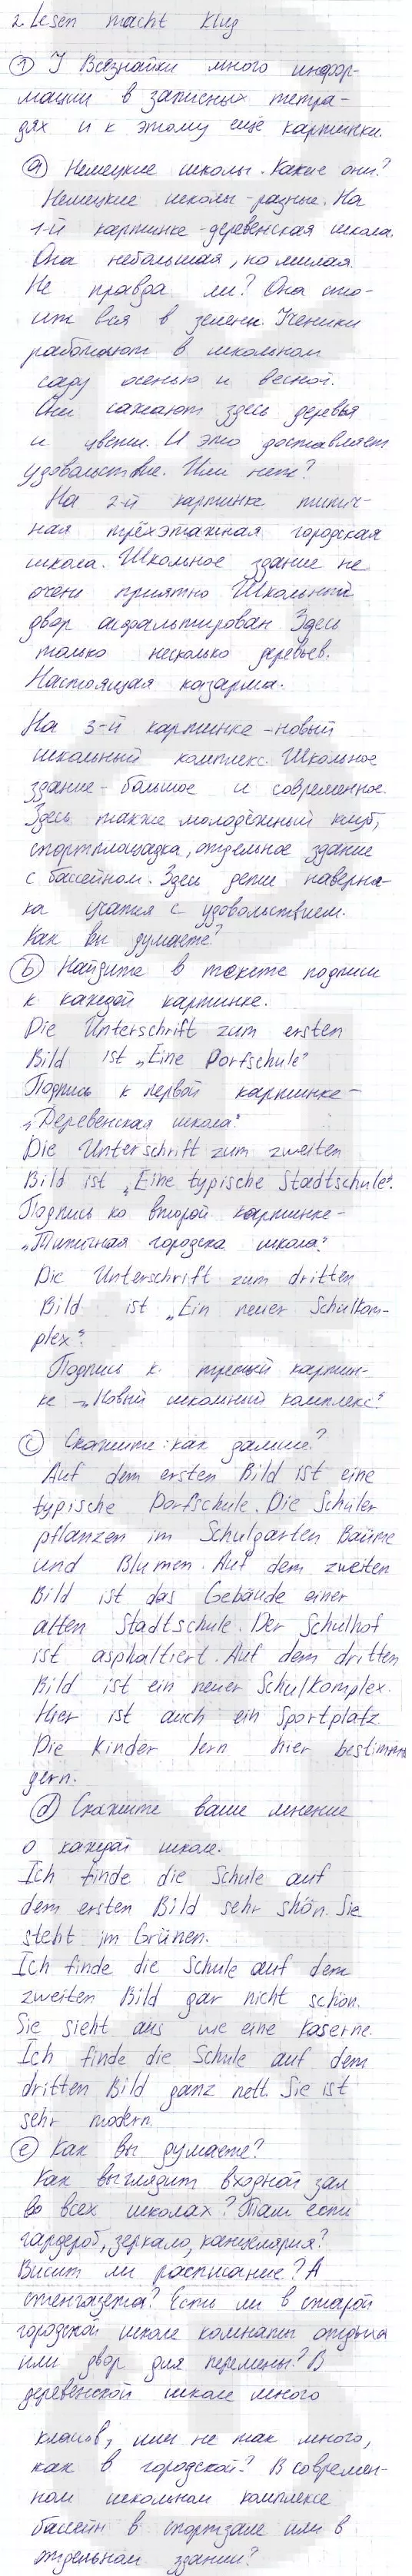 2. Lesen macht klug
① У Всезнайки много инфор-
мации в записных тетра-
дях и к этому ещё картинки.
ⓐ Немецкие школы. Какие они?
Немецкие школы - разные. На
1-й картинке - деревенская школа.
Она небольшая, но милая.
Не правда ли? Она сто-
ит вся в зелени. Ученики
работают в школьном
саду осенью и весной.
Они сажают здесь деревья
и цветы. И это доставляет
удовольствие. Или нет?
На 2-й картинке типич-
ная трёхэтажная городская
школа. Школьное здание не
очень приятно. Школьный
двор асфальтирован. Здесь
только несколько деревьев.
Настоящая казарма.
На 3-й картинке - новый
школьный комплекс. Школьное
здание - большое и современное.
Здесь также молодёжный клуб,
спортплощадка, отдельное здание
с бассейном. Здесь дети наверня-
ка учатся с удовольствием.
Как вы думаете?
ⓑ Найдите в тексте подписи
к каждой картинке.
Die Unterschrift zum ersten
Bild ist „Eine Dorfschule“
Подпись к первой картинке -
„Деревенская школа“.
Die Unterschrift zum zweiten
Bild ist „Eine typische Stadtschule“.
Подпись ко второй картинке -
„Типичная городска школа“.
Die Unterschrift zum dritten
Bild ist „Ein neuer Schulkom-
plex“.
Подпись к третьей картин-
ке - „Новый школьный комплекс“.
ⓒ Скажите: как дальше?
Auf dem ersten Bild ist eine
typische Dorfschule. Die Schüler
pflanzen im Schulgarten Bäume
und Blumen. Auf dem zweiten
Bild ist das Gebäude einer
alten Stadtschule. Der Schulhof
ist asphaltiert. Auf dem dritten
Bild ist ein neuer Schulkomplex.
Hier ist auch ein Sportplatz.
Die Kinder lern hier bestimmt
gern.
ⓓ Скажите ваше мнение
о каждой школе.
Ich finde die Schule auf
dem ersten Bild sehr shön. Sie
steht im Grünen.
Ich finde die Schule auf dem
zweiten Bild gar nicht schön.
Sie sieht aus wie eine Kaserne.
Ich finde die Schule auf dem
dritten Bild ganz nett. Sie ist
sehr modern.
ⓔ Как вы думаете?
Как выглядит входной зал
во всех школах? Там есть
гардероб, зеркало, канцелярия?
Висит ли расписание? А
стенгазета? Есть ли в старой
городской школе комнаты отдыха
или двор для перемены? В
деревенской школе много
класов, или не так много,
как в городской? В современ-
ном школьном комплексе
бассейн в спортзале или в
отдельном здании?